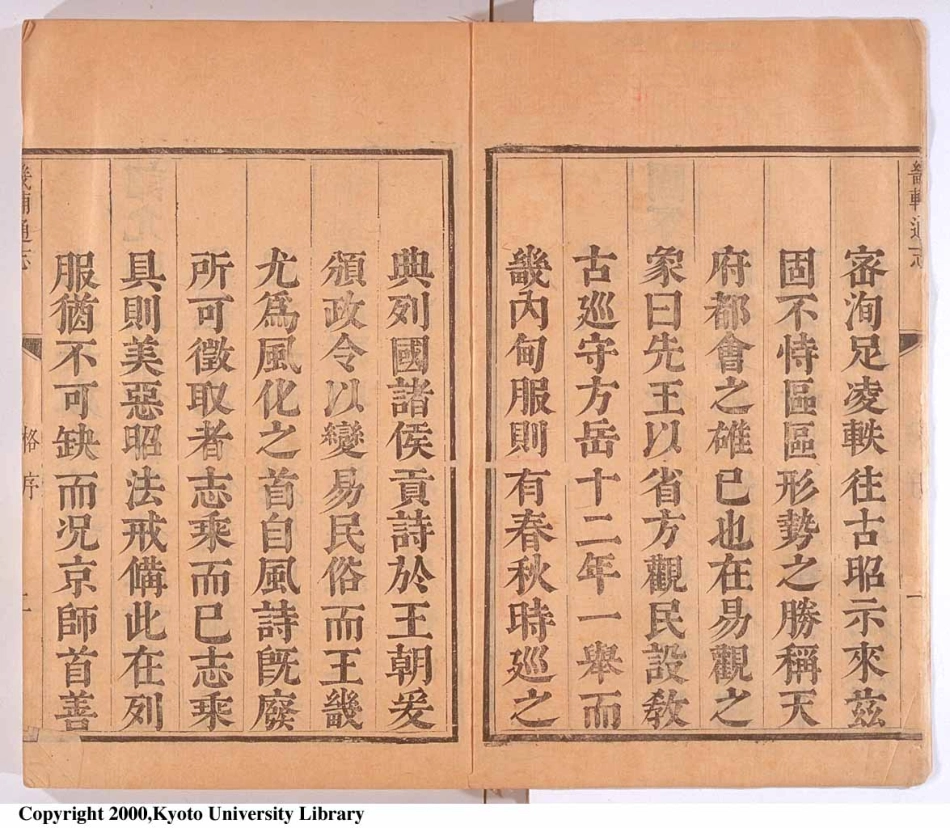 畿輔通志
審洵足凌軼往古昭示來茲
固不恃區區形勢之勝稱天
府都會之雄已也在易觀之
象曰先王以省方觀民設教
古巡守方岳十二年一舉而
畿內甸服則有春秋時廵之
典列國諸侯貢詩於王朝爰
頒政令以變易民俗而王畿
尤為風化之首自風詩旣廢
所可徵取者志乘而已志乘
具則美惡昭法戒備此在列
服猶不可缺而况京師首善
畿輔通志
格序
二
Copyright 2000,Kyoto University Library